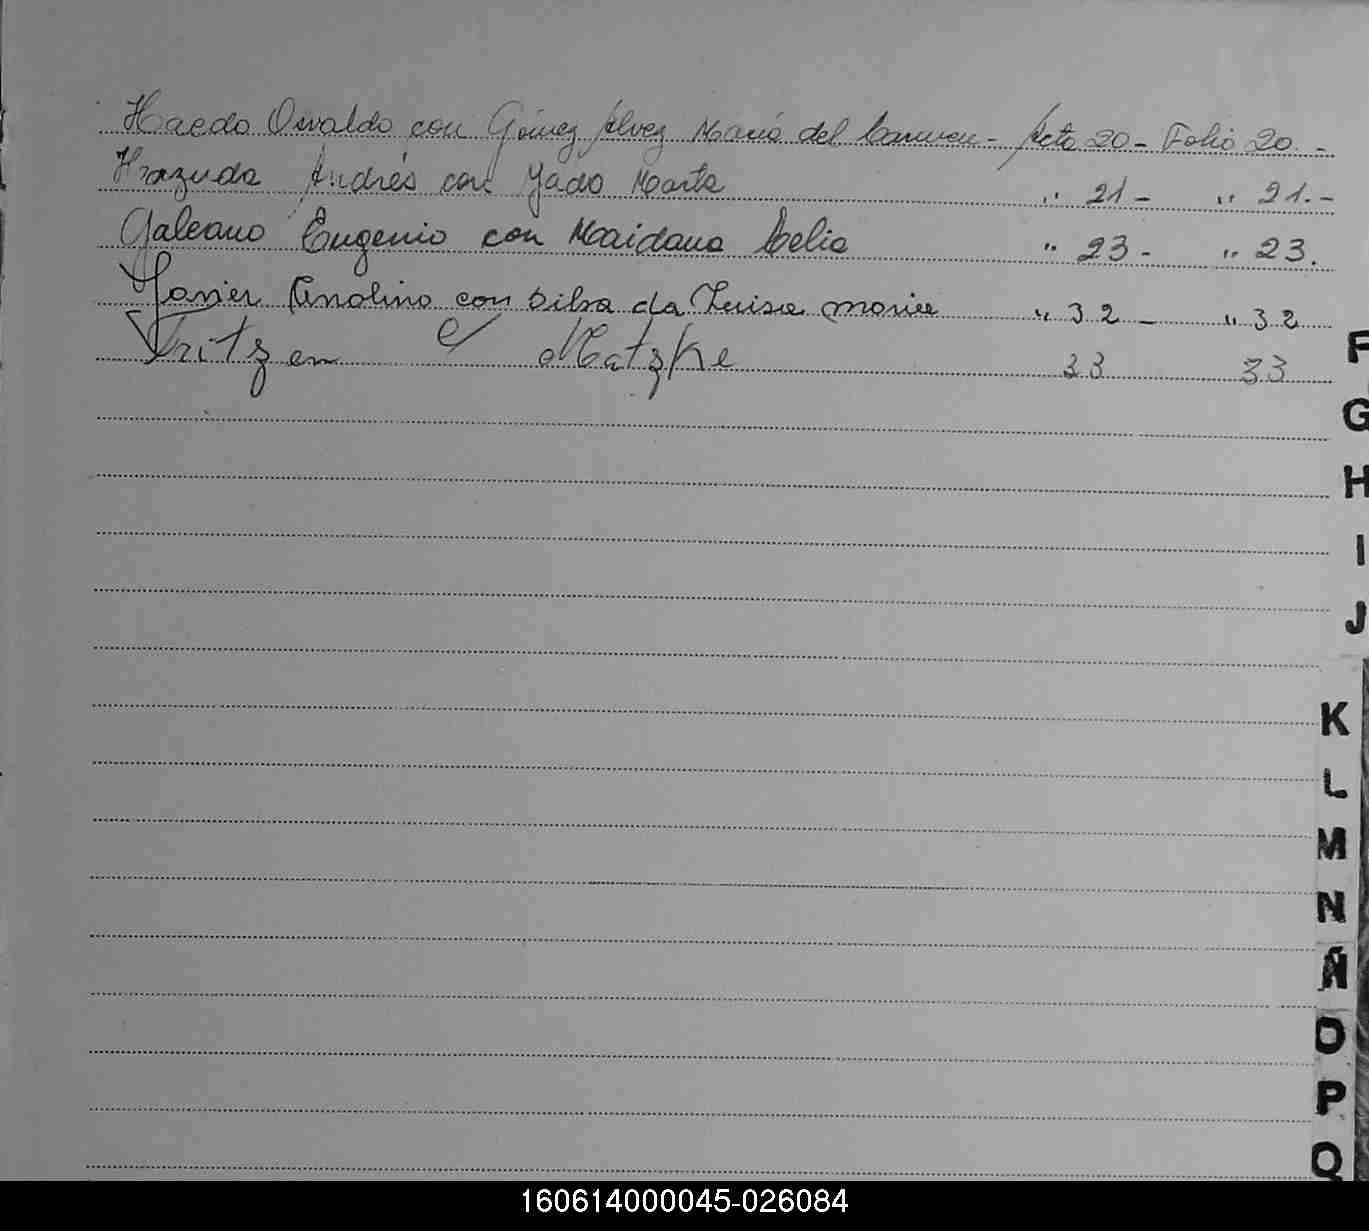 Haedo Osvaldo con Gómez Alvez María del Carmen - Acta 20 - Folio 20. -
Hrazuda Andrés con Yado Marta " 21 - " 21. -
Galeano Eugenio con Maidana Celia " 23 - " 23.
Javier con Silva da Luisa maria " 32 - " 32
Fritzen e Matzke 33 33
F
G
H
I
J
K
L
M
N
Ñ
O
P
Q
160614000045-026084